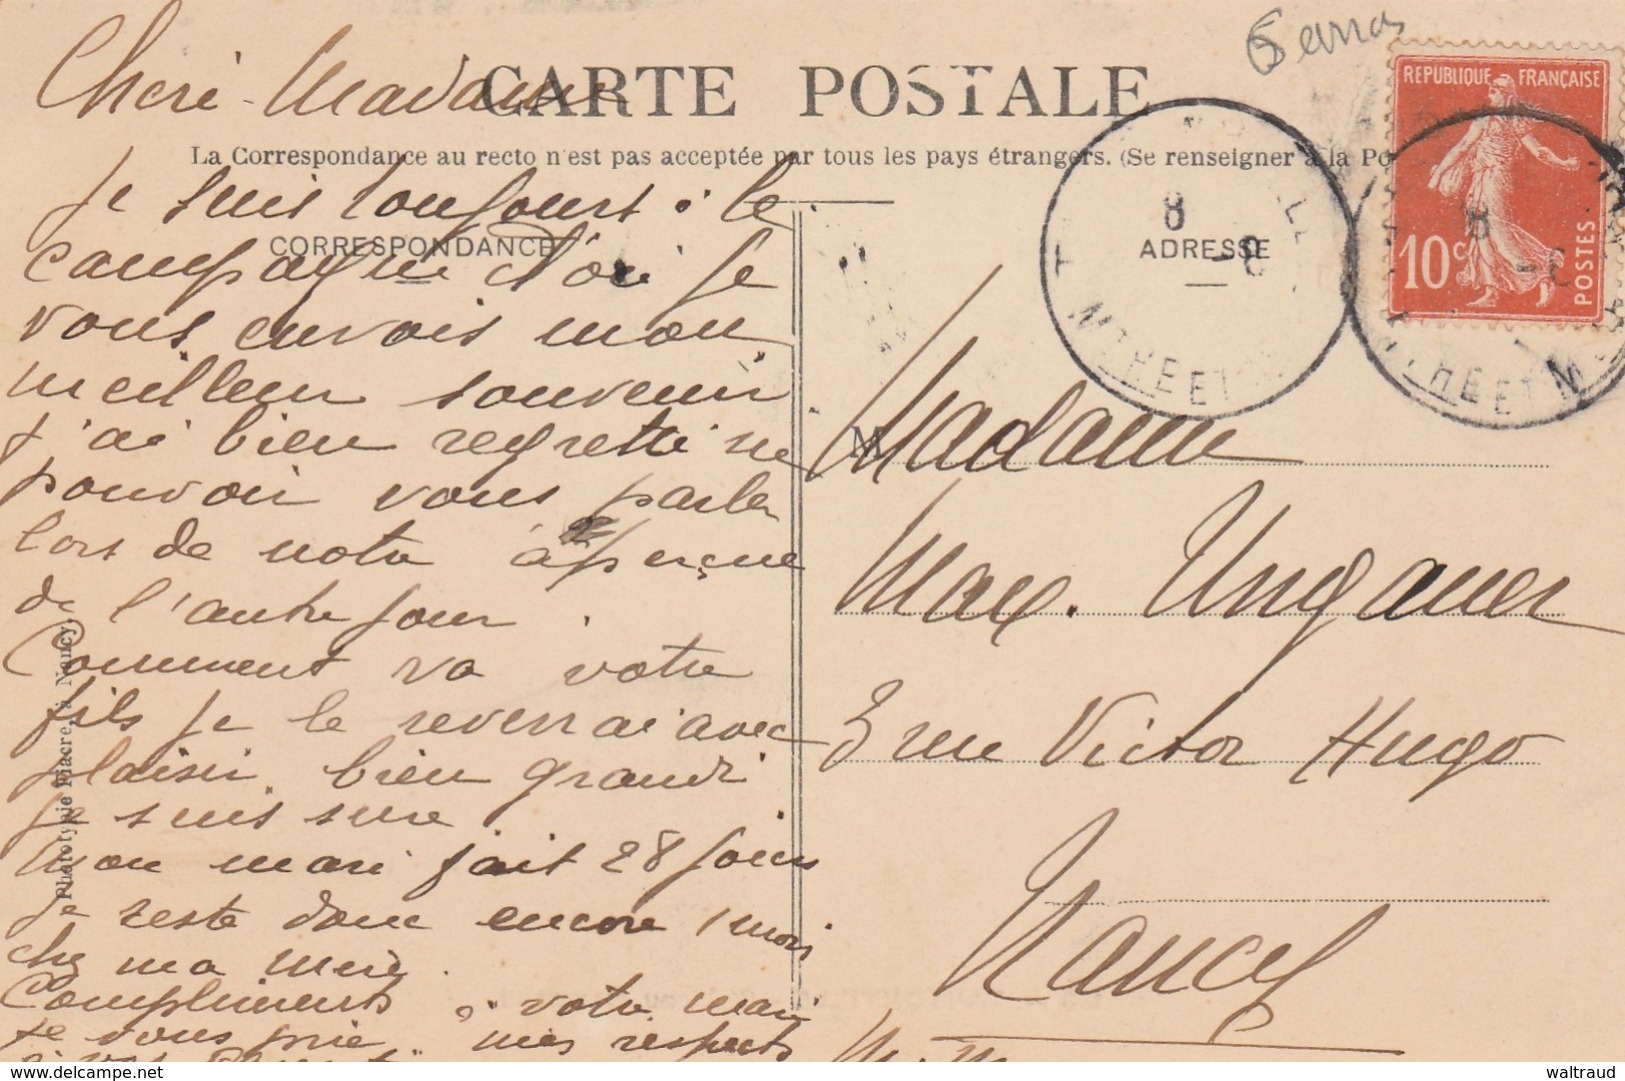 Cheri Madame
CARTE POSTALE
La Correspondance au recto n'est pas acceptée par tous les pays étrangers. (Se renseigner à la Po
CORRESPONDANCE
Je suis toujours à la
campagne d'où je
vous envois mon
meilleur souvenir
j'ai bien regretté ne
pouvoir vous parler
lors de notre aperçue
de l'autre jour.
Comment va votre
fils je le reverrai avec
plaisir, bien grandi
je suis sure
Mon mari fait 28 jours
je reste donc encore 1 mois
che ma mère.
Compliments à votre mari
je vous prie mes respects
Phototypie Fiacre, à Nancy.
ADRESSE
8
-8
Tt MTHE ET M
REPUBLIQUE FRANÇAISE
10c
POSTES
8
M
Madame
Max. Ungauer
3 rue Victor Hugo
Nancy
www.delcampe.net
waltraud